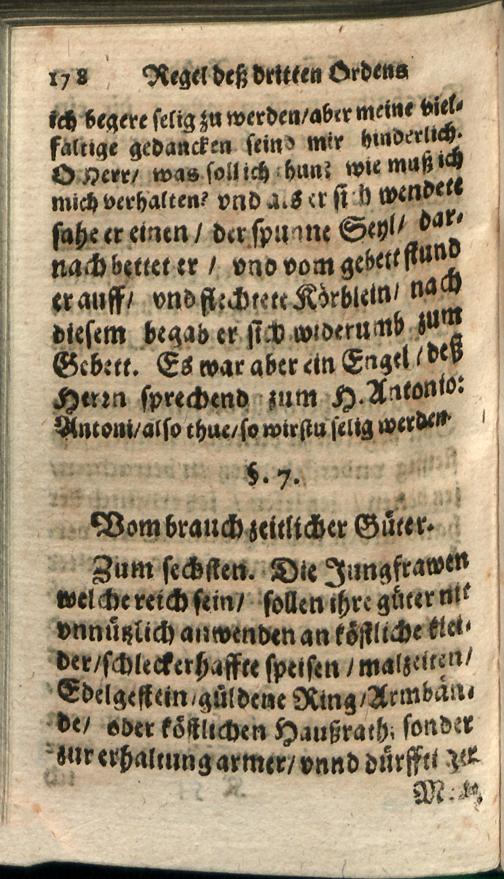 178 Regel deß dritten Ordens
ich begere selig zu werden/aber meine viel-
fältige gedancken seind mir hinderlich.
O Herr/ was soll ich thun? wie muß ich
mich verhalten? vnd als er sich wendete
sahe er einen / der spunne Seyl/ dar-
nach bettet er / vnd vom gebett stund
er auff/ vnd flechtete Körblein/ nach
diesem begab er sich widerumb zum
Gebett. Es war aber ein Engel / deß
Herrn sprechend zum H. Antonio:
Antoni/also thue/so wirstu selig werden.
§. 7.
Vom brauch zeitlicher Güter.
Zum sechsten. Die Jungfrawen
welche reich sein/ sollen ihre güter nit
vnnützlich anwenden an köstliche klei-
der/schleckerhaffte speisen / malzeiten/
Edelgestein/güldene Ring/Armbän-
de/ oder köstlichen Haußrath; sonder
zur erhaltung armer/ vnnd dürfftiger